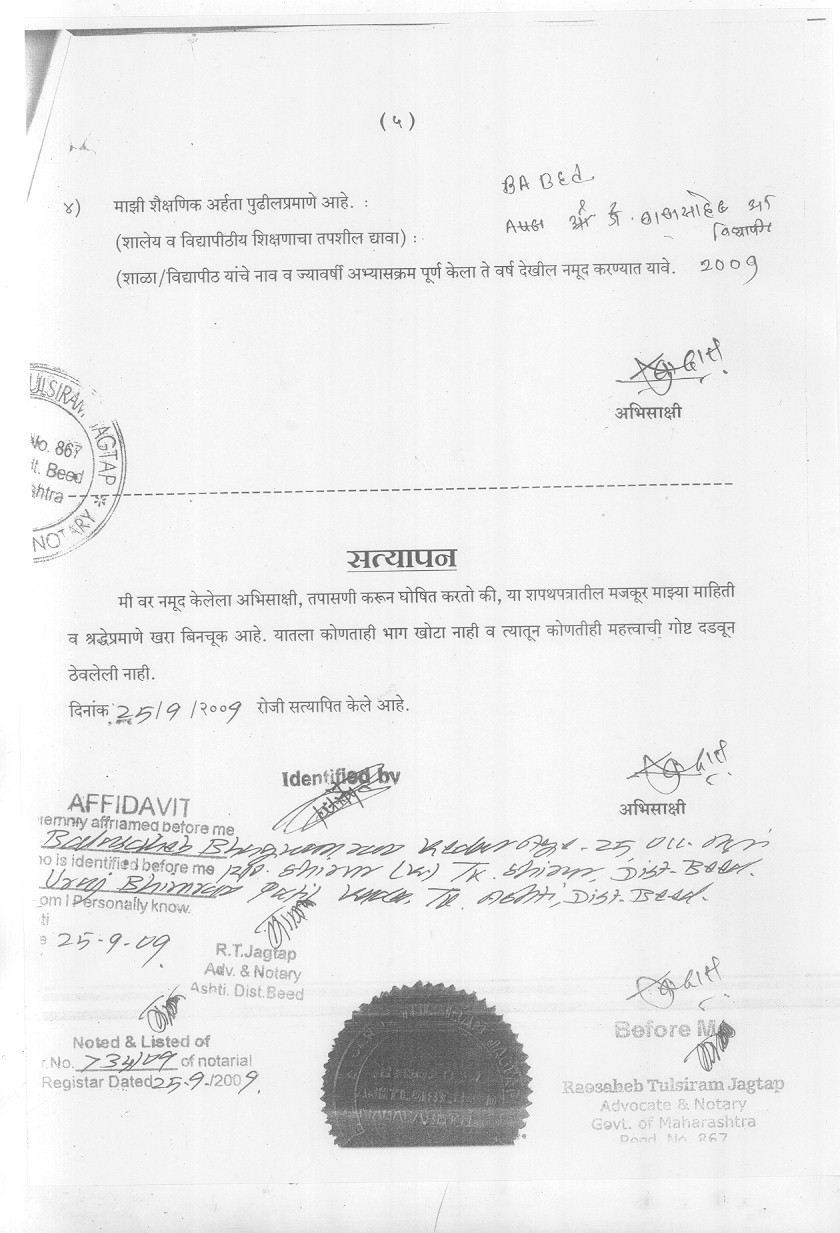 (५)
BA BEd
४) माझी शैक्षणिक अर्हता पुढीलप्रमाणे आहे. :
(शालेय व विद्यापीठीय शिक्षणाचा तपशील द्यावा) :
(शाळा/विद्यापीठ यांचे नाव व ज्यावर्षी अभ्यासक्रम पूर्ण केला ते वर्ष देखील नमूद करण्यात यावे. 2009
अभिसाक्षी
TULSIRAM JAGTAP
No. 867
Beed
NOTARY
सत्यापन
मी वर नमूद केलेला अभिसाक्षी, तपासणी करून घोषित करतो की, या शपथपत्रातील मजकूर माझ्या माहिती
व श्रद्धेप्रमाणे खरा बिनचूक आहे. यातला कोणताही भाग खोटा नाही व त्यातून कोणतीही महत्त्वाची गोष्ट दडवून
ठेवलेली नाही.
दिनांक 25/9/२००9 रोजी सत्यापित केले आहे.
Identified by
अभिसाक्षी
AFFIDAVIT
emnly affriamed before me
Balasaheb Kedar Age-25
o is identified before me R/o. Tk. Shirur, Dist-Beed.
Bhimrao Patil Tk. Ashti, Dist-Beed.
om I Personally know.
25-9-09
R.T.Jagtap
Adv. & Notary
Ashti. Dist.Beed
Noted & Listed of
r.No. 734/09 of notarial
Registar Dated 25-9-/2009.
Before Me
Raosaheb Tulsiram Jagtap
Advocate & Notary
Govt. of Maharashtra
Regd. No. 867